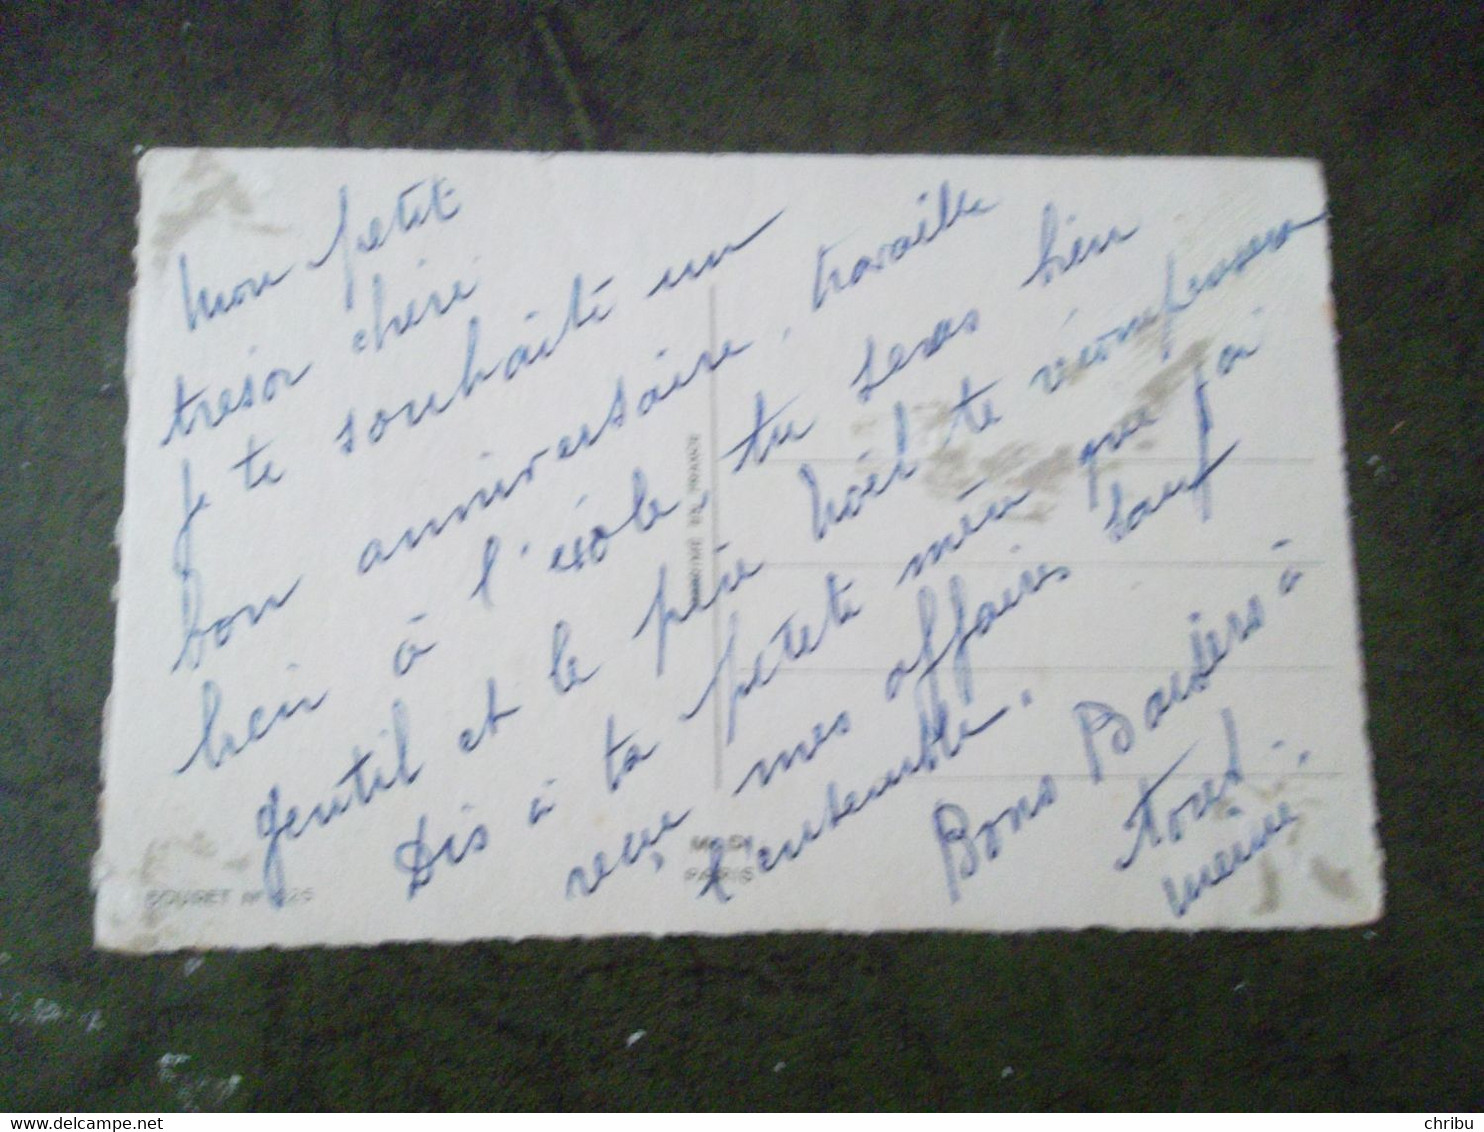 Mon petit
trésor chéri
Je te souhaite un
bon anniversaire, travaille
bien à l'école, tu seras bien
gentil et le père Noël te récompensera
Dis à ta petete mém que j'ai
reçu mes affaires sauf
l'ensemble.
Bons Baisers à
tous
mémé.
IMPRIMÉ EN FRANCE
PARIS
BOURET
chribu